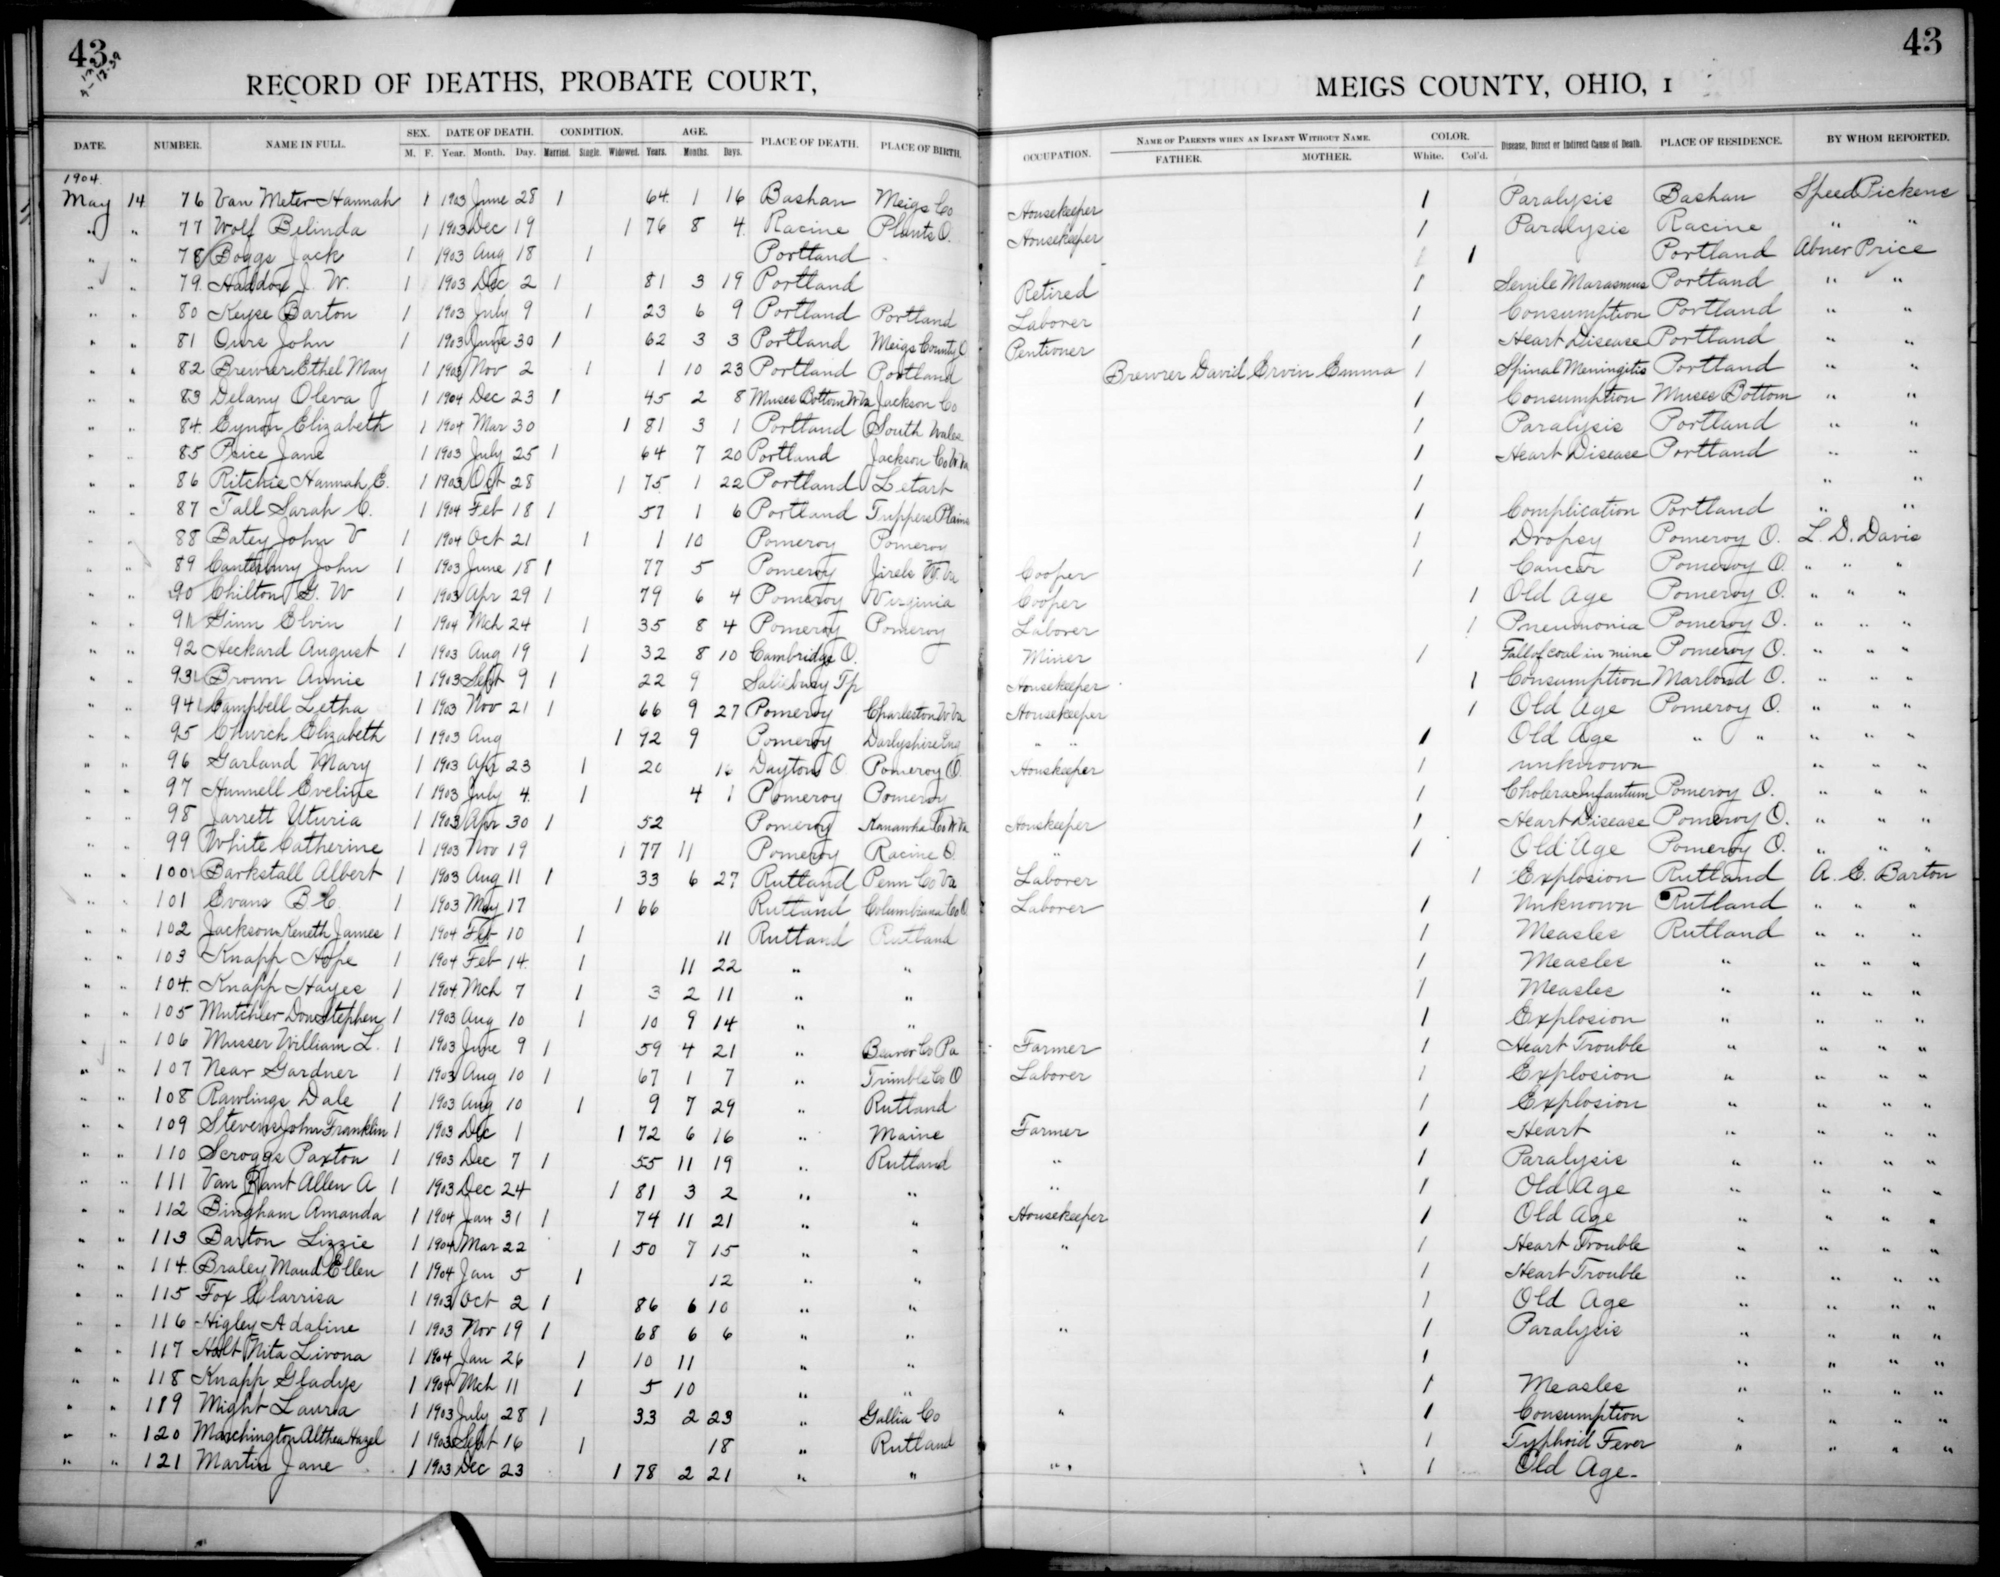 43
4-17-39
43
RECORD OF DEATHS, PROBATE COURT, MEIGS COUNTY, OHIO, 1
DATE. NUMBER. NAME IN FULL. SEX. DATE OF DEATH. CONDITION. AGE. PLACE OF DEATH. PLACE OF BIRTH. OCCUPATION. NAME OF PARENTS WHEN AN INFANT WITHOUT NAME. COLOR. Disease, Direct or Indirect Cause of Death. PLACE OF RESIDENCE. BY WHOM REPORTED.
M. F. Year. Month. Day. Married. Single. Widowed. Years. Months. Days. FATHER. MOTHER. White. Col'd.
1904
May 14 76 Van Meter Hannah 1 1903 June 28 1 64 1 16 Bashan Meigs Co Housekeeper 1 Paralysis Bashan Speed Pickens
" " 77 Wolf Belinda 1 1903 Dec 19 1 76 8 4 Racine Plants O. Housekeeper 1 Paralysis Racine " "
" " 78 Boggs Jack 1 1903 Aug 18 1 Portland 1 Portland Abner Price
" " 79 Haddox J. W. 1 1903 Dec 2 1 81 3 19 Portland Retired 1 Senile Marasmus Portland " "
" " 80 Keyse Barton 1 1903 July 9 1 23 6 9 Portland Portland Laborer 1 Consumption Portland " "
" " 81 Ours John 1 1903 June 30 1 62 3 3 Portland Meigs County O Pentioner 1 Heart Disease Portland " "
" " 82 Brewer Ethel May 1 1903 Nov 2 1 1 10 23 Portland Portland Brewer David Ervin Emma 1 Spinal Meningitis Portland " "
" " 83 Delany Oleva 1 1904 Dec 23 1 45 2 8 Muses Bottom W Va Jackson Co 1 Consumption Muses Bottom " "
" " 84 Eynon Elizabeth 1 1904 Mar 30 1 81 3 1 Portland South Wales 1 Paralysis Portland " "
" " 85 Price Jane 1 1903 July 25 1 64 7 20 Portland Jackson Co W Va 1 Heart Disease Portland " "
" " 86 Ritchie Hannah E. 1 1903 Oct 28 1 75 1 22 Portland Letart 1 " "
" " 87 Tall Sarah C. 1 1904 Feb 18 1 57 1 6 Portland Tuppers Plains 1 Complication Portland " "
" " 88 Batey John V 1 1904 Oct 21 1 1 10 Pomeroy Pomeroy 1 Dropsy Pomeroy O. L. D. Davis
" " 89 Canterbury John 1 1903 June 18 1 77 5 Pomeroy W Va Cooper 1 Cancer Pomeroy O. " " "
" " 90 Chilton G. W 1 1903 Apr 29 1 79 6 4 Pomeroy Virginia Cooper 1 Old Age Pomeroy O. " " "
" " 91 Ginn Elvin 1 1904 Mch 24 1 35 8 4 Pomeroy Pomeroy Laborer 1 Pneumonia Pomeroy O. " " "
" " 92 Heckard August 1 1903 Aug 19 1 32 8 10 Cambridge O. Miner 1 Fall of coal in mine Pomeroy O. " " "
" " 93 Brown Annie 1 1903 Sept 9 1 22 9 Salisbury Tp Housekeeper 1 Consumption Marland O. " " "
" " 94 Campbell Letha 1 1903 Nov 21 1 66 9 27 Pomeroy Charleston W Va Housekeeper 1 Old Age Pomeroy O. " " "
" " 95 Church Elizabeth 1 1903 Aug 1 72 9 Pomeroy Darbyshire Eng " " 1 Old Age " " " " "
" " 96 Garland Mary 1 1903 Apr 23 1 20 16 Dayton O Pomeroy O. Housekeeper 1 unknown " " "
" " 97 Hunnell Eveline 1 1903 July 4 1 4 1 Pomeroy Pomeroy 1 Cholera Infantum Pomeroy O. " " "
" " 98 Jarrett Uturia 1 1903 Apr 30 1 52 Pomeroy Kanawha Co W Va Housekeeper 1 Heart Disease Pomeroy O. " " "
" " 99 White Catherine 1 1903 Nov 19 1 77 11 Pomeroy Racine O. " 1 Old Age Pomeroy O. " " "
" " 100 Barkstall Albert 1 1903 Aug 11 1 33 6 27 Rutland Penn Co Va Laborer 1 Explosion Rutland A. E. Barton
" " 101 Evans B. C. 1 1903 May 17 1 66 Rutland Columbiana Co O Laborer 1 Unknown Rutland " " "
" " 102 Jackson Keneth James 1 1904 Feb 10 1 11 Rutland Rutland 1 Measles Rutland " " "
" " 103 Knapp Hope 1 1904 Feb 14 1 11 22 " " 1 Measles " " " "
" " 104 Knapp Hayes 1 1904 Mch 7 1 3 2 11 " " 1 Measles " " " "
" " 105 Mutchler Don Stephen 1 1903 Aug 10 1 10 9 14 " " 1 Explosion " " " "
" " 106 Musser William L. 1 1903 June 9 1 59 4 21 " Beaver Co Pa Farmer 1 Heart Trouble " " " "
" " 107 Near Gardner 1 1903 Aug 10 1 67 1 7 " Trimble Co O Laborer 1 Explosion " " " "
" " 108 Rawlings Dale 1 1903 Aug 10 1 9 7 29 " Rutland 1 Explosion " " " "
" " 109 Stevens John Franklin 1 1903 Dec 1 1 72 6 16 " Maine Farmer 1 Heart " " " "
" " 110 Scroggs Paxton 1 1903 Dec 7 1 55 11 19 " Rutland " 1 Paralysis " " " "
" " 111 Van Zant Allen A 1 1903 Dec 24 1 81 3 2 " " " 1 Old Age " " " "
" " 112 Bingham Amanda 1 1904 Jan 31 1 74 11 21 " " Housekeeper 1 Old Age " " " "
" " 113 Barton Lizzie 1 1904 Mar 22 1 50 7 15 " " " 1 Heart Trouble " " " "
" " 114 Braley Maud Ellen 1 1904 Jan 5 1 12 " " 1 Heart Trouble " " " "
" " 115 Fox Clarrisa 1 1903 Oct 2 1 86 6 10 " " 1 Old Age " " " "
" " 116 Higley Adaline 1 1903 Nov 19 1 68 6 6 " " " 1 Paralysis " " " "
" " 117 Holt Nita Livona 1 1904 Jan 26 1 10 11 " " 1 " " " "
" " 118 Knapp Gladys 1 1904 Mch 11 1 5 10 " " 1 Measles " " " "
" " 119 Might Laura 1 1903 July 28 1 33 2 23 " Gallia Co " 1 Consumption " " " "
" " 120 Machington Althea Hazel 1 1903 Sept 16 1 18 " Rutland 1 Typhoid Fever " " " "
" " 121 Martin Jane 1 1903 Dec 23 1 78 2 21 " " " " 1 Old Age